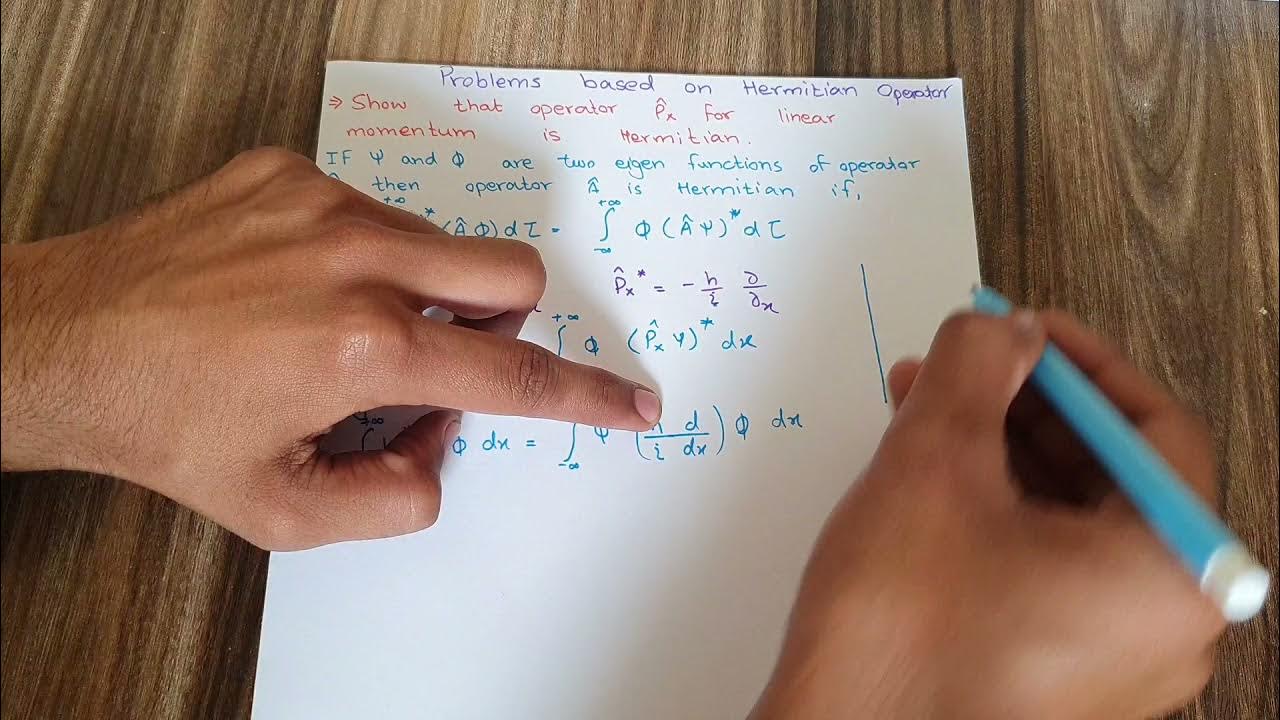 Problems based on Hermitian Operator
⇒ Show that operator P̂x for linear
momentum is Hermitian.
If Ψ and Φ are two eigen functions of operator
then operator Â is Hermitian if,
* (ÂΦ)dτ = ∫_{-∞}^{+∞} Φ(ÂΨ)* dτ
P̂x* = -h/i ∂/∂x
∫^{+∞} Φ (P̂xΨ)* dx
Φ dx = ∫_{-∞} Ψ (h d / i dx) Φ dx